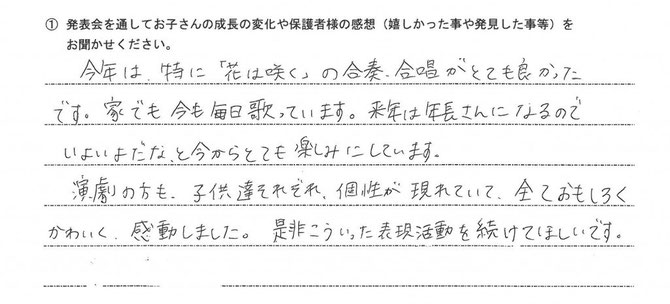 ① 発表会を通してお子さんの成長の変化や保護者様の感想（嬉しかった事や発見した事等）を
お聞かせください。
今年は、特に「花は咲く」の合奏、合唱がとても良かった
です。家でも今も毎日歌っています。来年は年長さんになるので
いよいよだな、と今からとても楽しみにしています。
演劇の方も、子供達それぞれ、個性が現れていて、全ておもしろく
かわいく、感動しました。是非こういった表現活動を続けてほしいです。